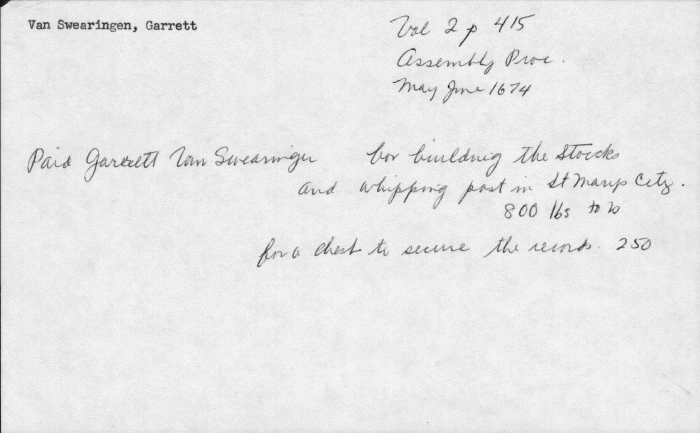 Van Swearingen, Garrett
Vol 2 p 415
Assembly Proc.
May June 1674
Paid Garrett Van Swearingen for building the Stocks
and whipping post in St Marys City.
800 lbs to b
for a chest to secure the records. 250